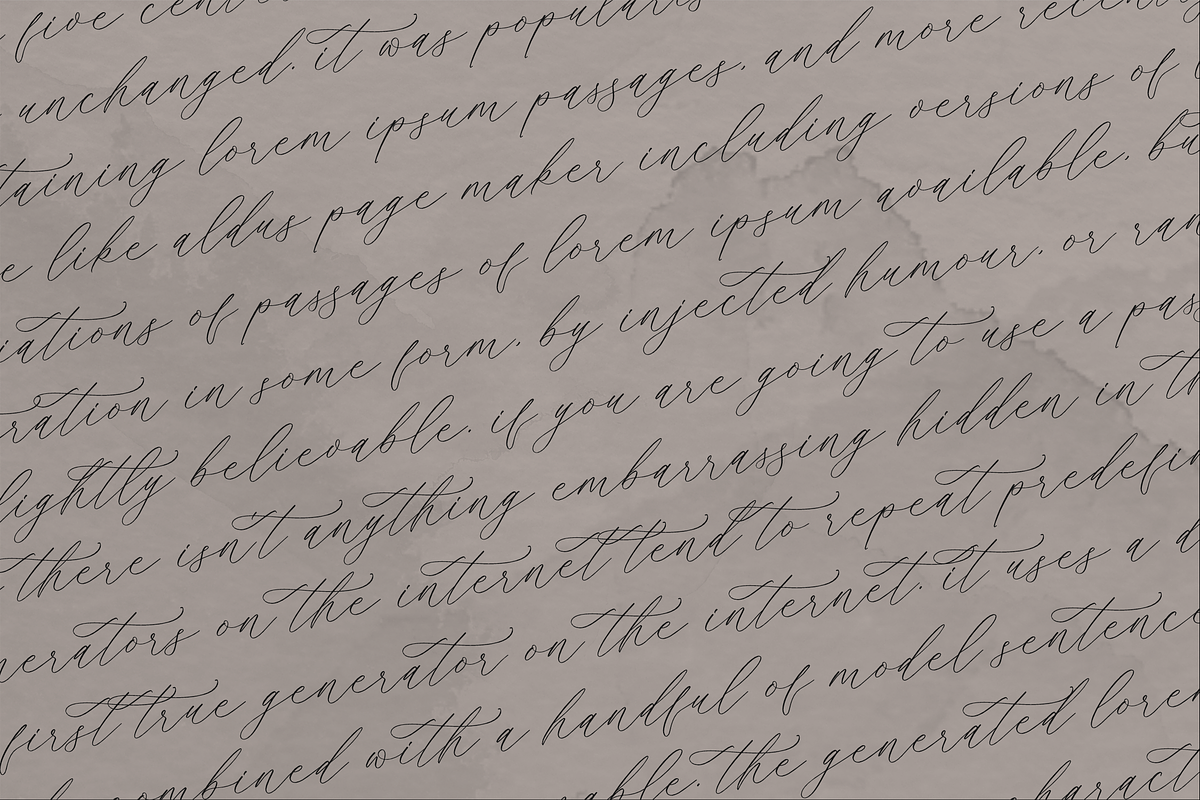 five cent
unchanged. it was popularis
taining lorem ipsum passages. and more recently
e like aldus page maker including versions of
iations of passages of lorem ipsum available. bu
ration in some form. by injected humour. or ran
lightly believable. if you are going to use a pas
there isn't anything embarrassing hidden in th
nerators on the internet tend to repeat predefin
first true generator on the internet. it uses a d
combined with a handful of model sentence
able. the generated lore
haract